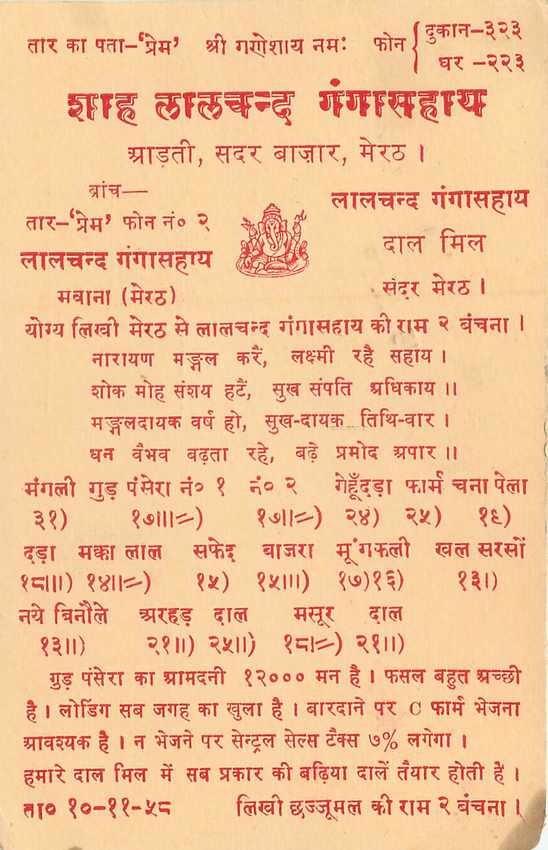 तार का पता-'प्रेम' श्री गणेशाय नमः फोन { दुकान-३२३
घर -२२३
शाह लालचन्द गंगासहाय
आड़ती, सदर बाज़ार, मेरठ ।
ब्रांच—
तार-'प्रेम' फोन नं० २
लालचन्द गंगासहाय
मवाना (मेरठ)
लालचन्द गंगासहाय
दाल मिल
सदर मेरठ ।
योग्य लिखी मेरठ से लालचन्द गंगासहाय की राम २ बंचना ।
नारायण मङ्गल करैं, लक्ष्मी रहै सहाय ।
शोक मोह संशय हटैं, सुख संपति अधिकाय ॥
मङ्गलदायक वर्ष हो, सुख-दायक तिथि-वार ।
धन वैभव बढ़ता रहे, बढ़े प्रमोद अपार ॥
मंगली गुड़ पंसेरा नं० १ नं० २ गेहूँदड़ा फार्म चना पेला
३१) १७॥।=) १७॥=) २४) २५) १९)
दड़ा मक्का लाल सफेद बाजरा मूंगफली खल सरसों
१८॥।) १४॥=) १५) १५॥।) १७)१६) १३।)
नये बिनौले अरहड़ दाल मसूर दाल
१३॥) २१॥) २५॥) १८।=) २१॥)
गुड़ पंसेरा का आमदनी १२००० मन है । फसल बहुत अच्छी
है । लोडिंग सब जगह का खुला है । बारदाने पर C फार्म भेजना
आवश्यक है । न भेजने पर सेन्ट्रल सेल्स टैक्स ७% लगेगा ।
हमारे दाल मिल में सब प्रकार की बढ़िया दालें तैयार होती हैं ।
ता० १०-११-५८ लिखी छज्जूमल की राम २ बंचना ।